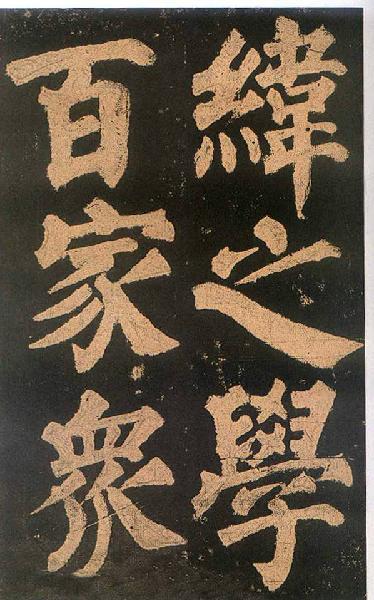 緯之學
百家眾